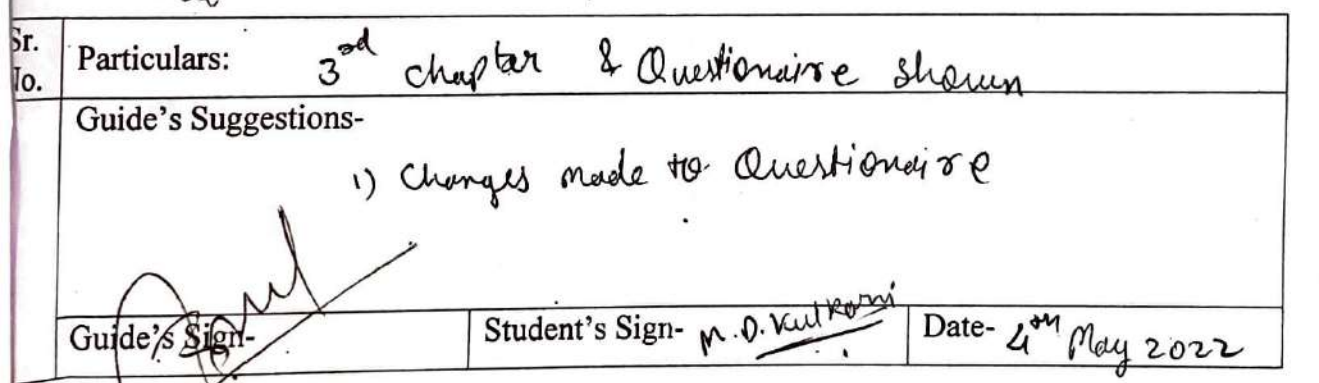 Sr.
No.
Particulars: 3rd chapter & Questionaire shown
Guide's Suggestions-
1) Changes made to Questionaire
Guide's Sign-
Student's Sign- M.D. Kulkarni
Date- 4th May 2022